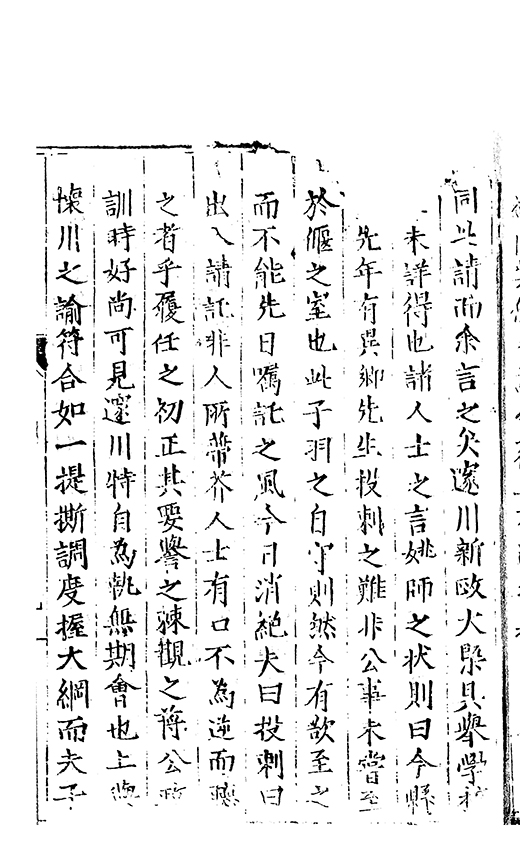 同其請而余言之矣邃川新政大槩具舉學
未詳得也諸人士之言姚師之狀則曰今縣
先年有異鄉先生投刺之難非公事未嘗至
於偃之室也此子羽之自守則然今有欲至之
而不能先日囑託之風今日消絕夫曰投刺曰
出入請託非人所蒂芥人士有口不為逆而
之者乎履任之初正其要譽之竦觀之蔣公
訓時好尚可見邃川特自為執無期會也上與
懷川之諭符合如一提撕調度握大綱而夫子